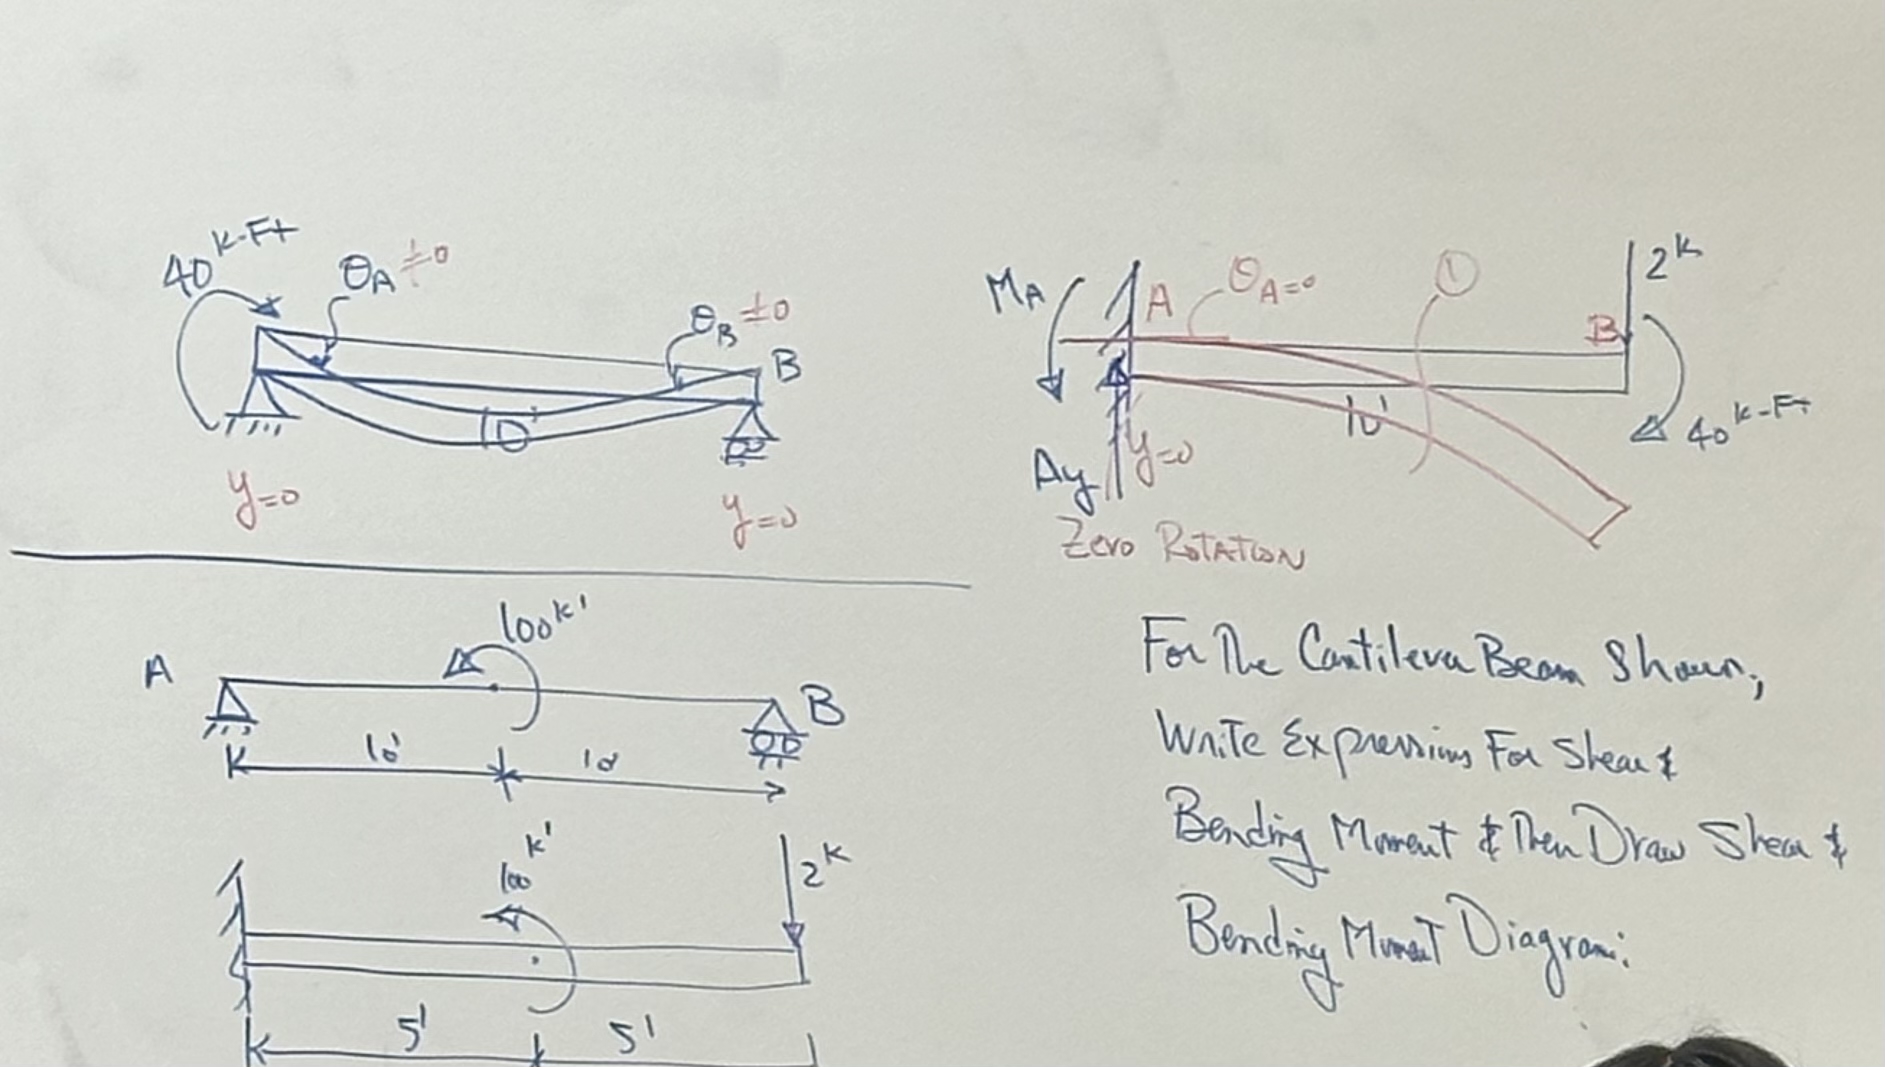 40 K-Ft
θA ≠0
θB ≠0
B
10'
y=0
y=0
MA
A
θA=0
1
2K
B
10'
40 K-Ft
Ay
y=0
Zero Rotation
100K'
A
B
10'
10'
100K'
2K
5'
5'
For The Cantilever Beam Shown,
Write Expressions For Shear &
Bending Moment & Then Draw Shear &
Bending Moment Diagram: